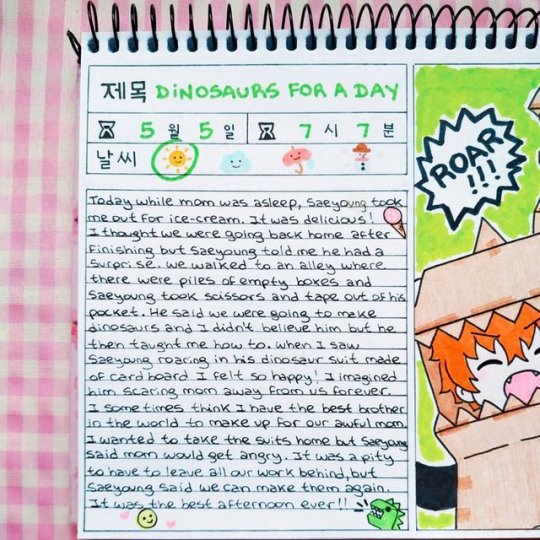 제목 DINOSAURS FOR A DAY
5 월 5 일 7 시 7 분
날씨
Today while mom was asleep, Saeyoung took
me out for ice-cream. It was delicious!
I thought we were going back home after
finishing but Saeyoung told me he had a
surprise. We walked to an alley where
there were piles of empty boxes and
Saeyoung took scissors and tape out of his
pocket. He said we were going to make
dinosaurs and I didn't believe him but he
then taught me how to. When I saw
Saeyoung roaring in his dinosaur suit made
of cardboard I felt so happy! I imagined
him scaring mom away from us forever.
I sometimes think I have the best brother
in the world to make up for our awful mom.
I wanted to take the suits home but Saeyoung
said mom would get angry. It was a pity
to have to leave all our work behind, but
Saeyoung said we can make them again.
It was the best afternoon ever!!
ROAR
!!!